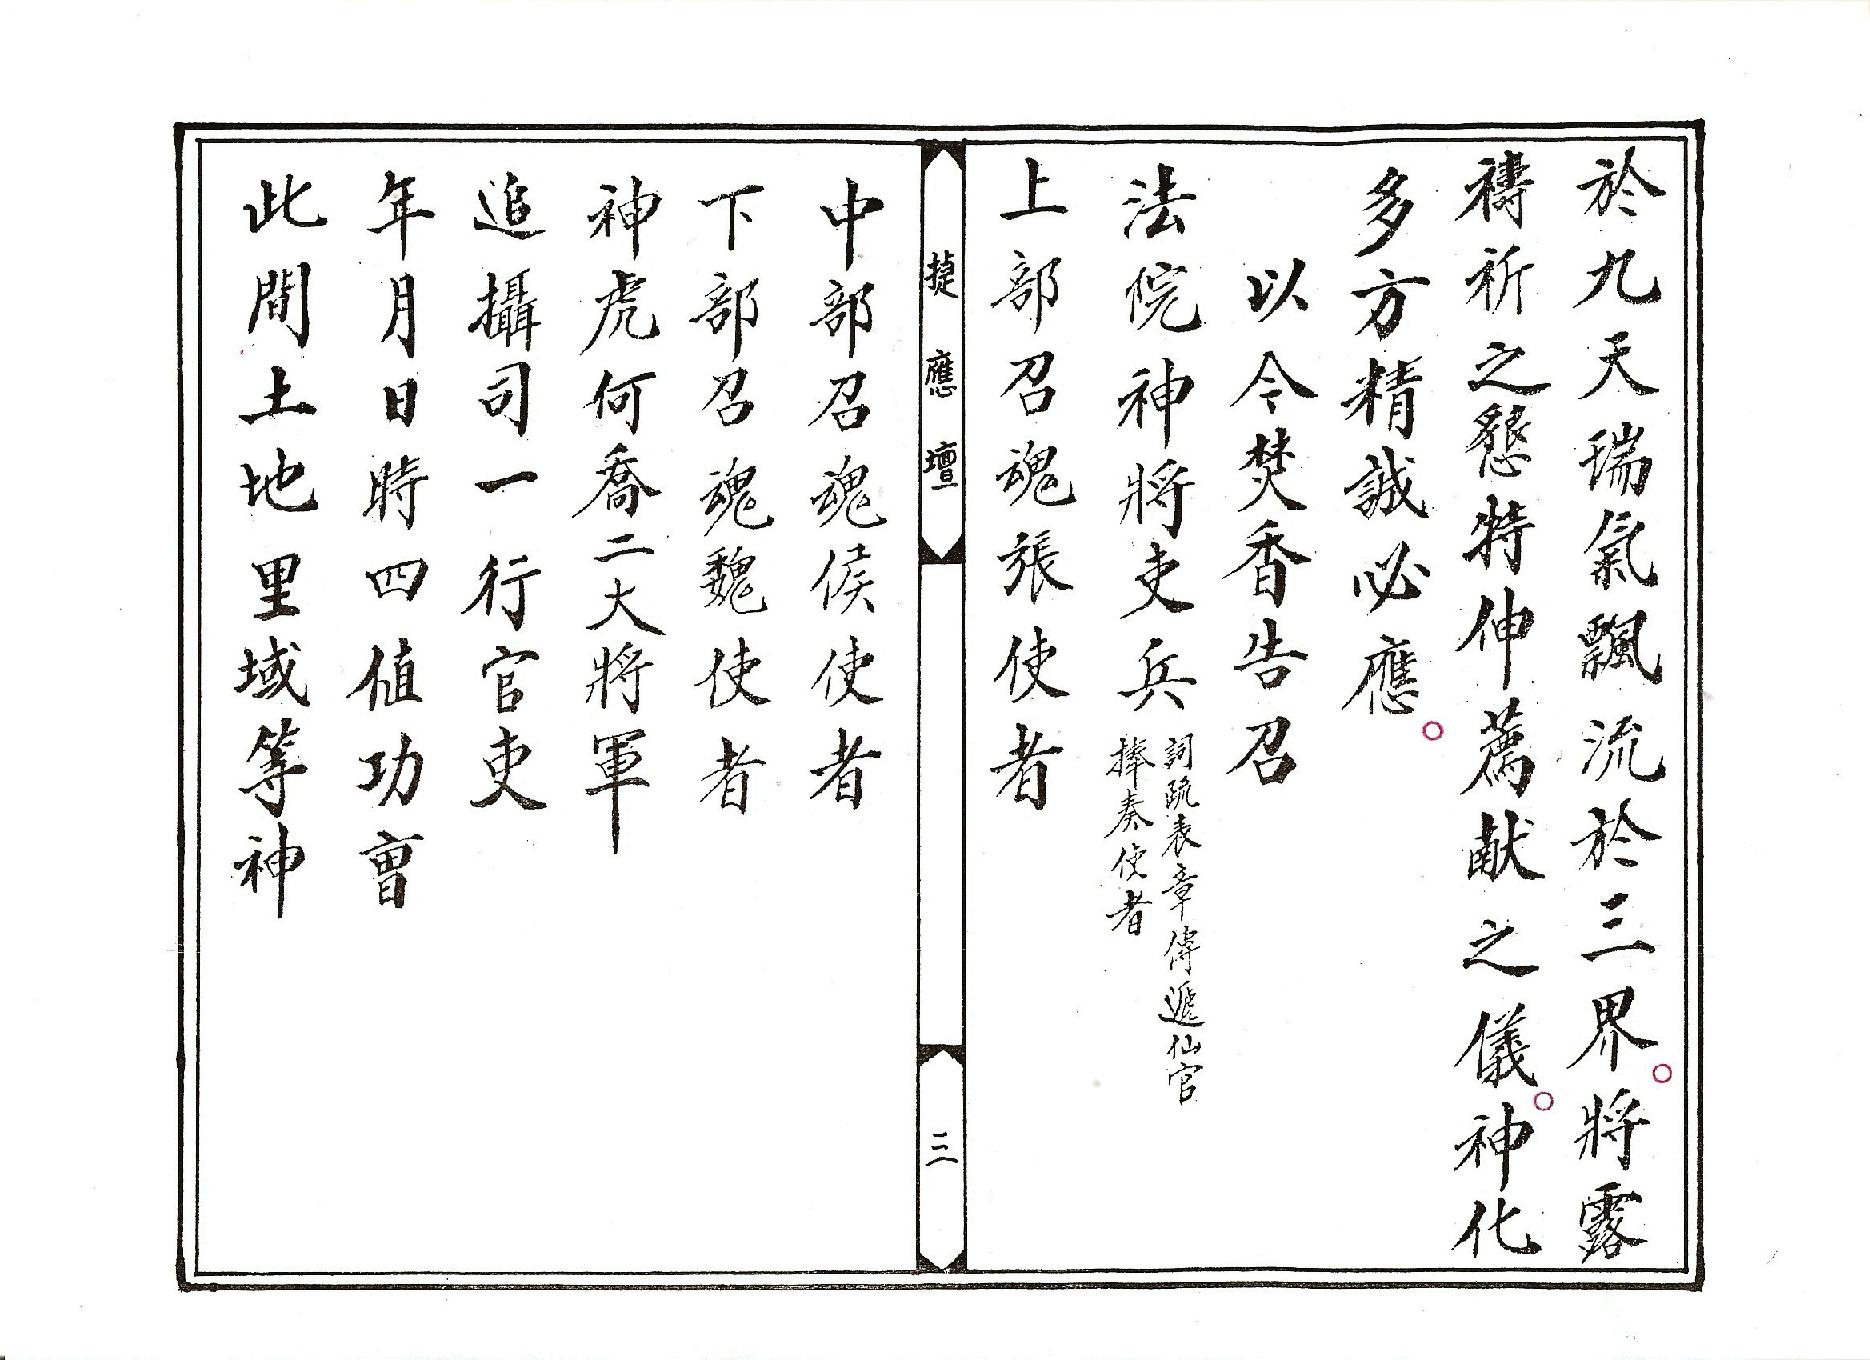 於九天瑞氣飄流於三界。將露
禱祈之懇特伸薦献之儀。神化
多方精誠必應。
以今焚香告召
法院神將吏兵 詞疏表章傳遞仙官
捧奏使者
上部召魂張使者
捷應壇 三
中部召魂侯使者
下部召魂魏使者
神虎何喬二大將軍
追攝司一行官吏
年月日時四值功曹
此間土地里域等神